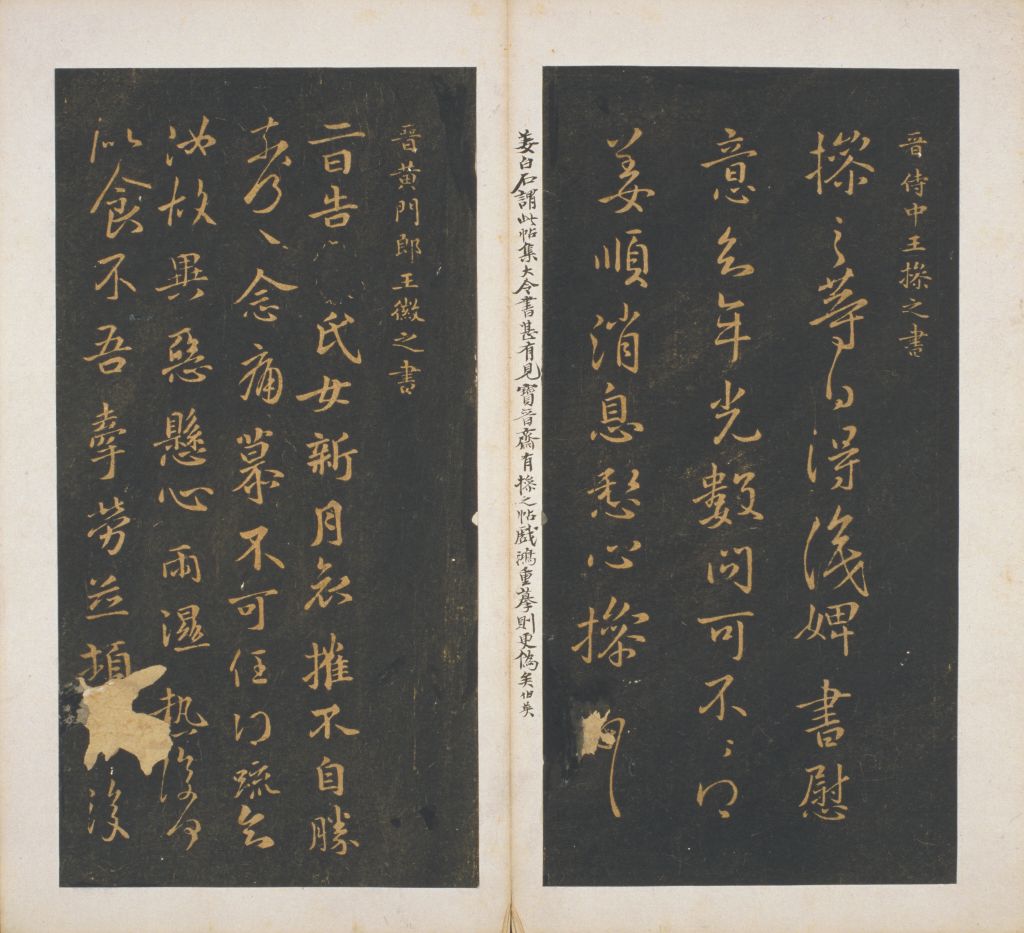 晉侍中王操之書
操之等日得識婢書慰
意云年光數問可不〻
姜順消息愁心操
姜白石謂此帖集大令書甚有見寶晉齋有操之帖戲鴻重摹則更偽矣伯英
晉黃門郎王徽之書
二日告 氏女新月哀摧不自勝
奈何〻念痛慕不可任得疏知
汝故異惡懸心雨濕熱復何
似食不吾牽勞並頓 復